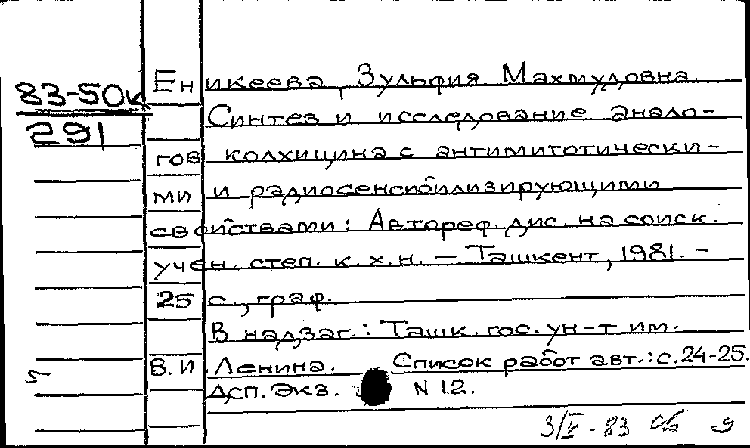 Еникеева, Зульфия Махмудовна
83-50к
291
Синтез и исследование анало-
гов колхицина с антимитотически-
ми и радиосенсибилизирующими
свойствами: Автореф. дис. на соиск.
учен. степ. к. х. н. – Ташкент, 1981. –
25 с., граф.
В надзаг.: Ташк. гос. ун-т им.
В. И. Ленина. Список работ авт.: с. 24-25.
Дсп. Экз. N 12.
3/V - 83